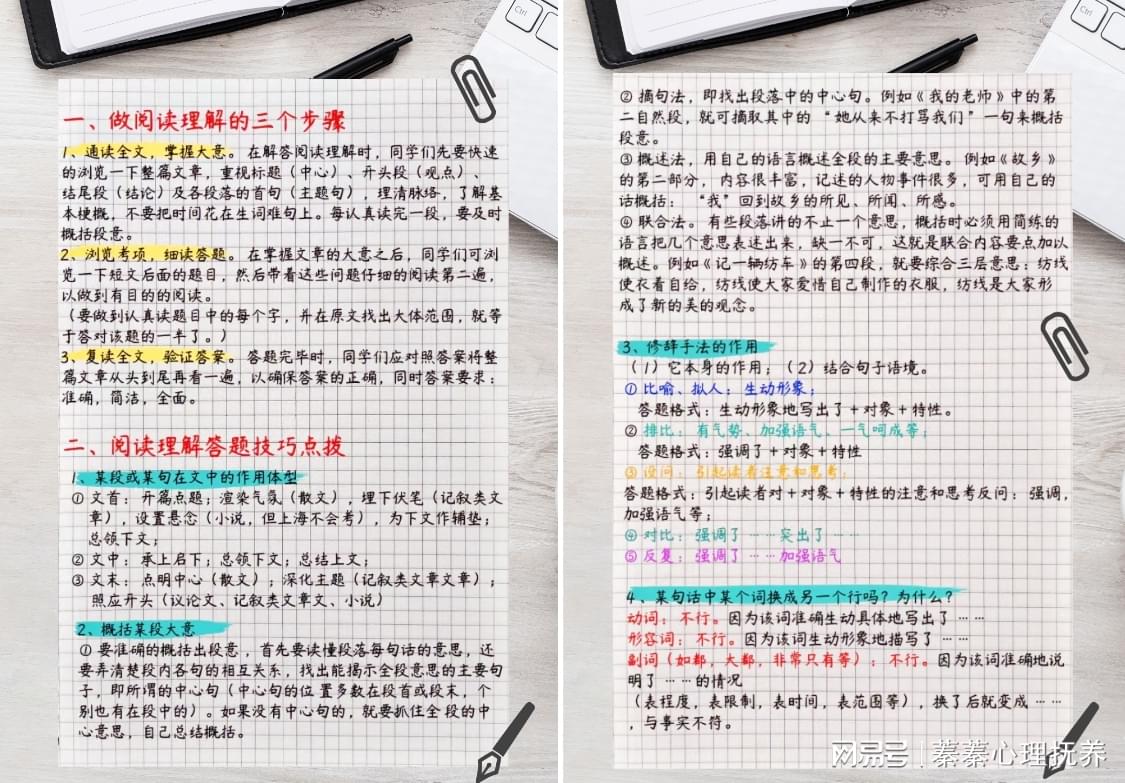 一、做阅读理解的三个步骤
1、通读全文，掌握大意。在解答阅读理解时，同学们先要快速
的浏览一下整篇文章，重视标题（中心）、开头段（观点）、
结尾段（结论）及各段落的首句（主题句），理清脉络，了解基
本梗概，不要把时间花在生词难句上。每认真读完一段，要及时
概括段意。
2、浏览考项，细读答题。在掌握文章的大意之后，同学们可浏
览一下短文后面的题目，然后带着这些问题仔细的阅读第二遍，
以做到有目的的阅读。
（要做到认真读题目中的每个字，并在原文找出大体范围，就等
于答对该题的一半了。）
3、复读全文，验证答案。答题完毕时，同学们应对照答案将整
篇文章从头到尾再看一遍，以确保答案的正确，同时答案要求：
准确，简洁，全面。
二、阅读理解答题技巧点拨
1、某段或某句在文中的作用体型
① 文首：开篇点题；渲染气氛（散文），埋下伏笔（记叙类文
章），设置悬念（小说，但上海不会考），为下文作辅垫；
总领下文；
② 文中：承上启下；总领下文；总结上文；
③ 文末：点明中心（散文）；深化主题（记叙类文章文章）；
照应开头（议论文、记叙类文章文、小说）
2、概括某段大意
① 要准确的概括出段意，首先要读懂段落每句话的意思，还
要弄清楚段内各句的相互关系，找出能揭示全段意思的主要句
子，即所谓的中心句（中心句的位置多数在段首或段末，个
别也有在段中的）。如果没有中心句的，就要抓住全段的中
心意思，自己总结概括。
② 摘句法，即找出段落中的中心句。例如《我的老师》中的第
二自然段，就可摘取其中的“她从来不打骂我们”一句来概括
段意。
③ 概述法，用自己的语言概述全段的主要意思。例如《故乡》
的第二部分，内容很丰富，记述的人物事件很多，可用自己的
话概括：“我”回到故乡的所见、所闻、所感。
④ 联合法。有些段落讲的不止一个意思，概括时必须用简练的
语言把几个意思表述出来，缺一不可，这就是联合内容要点加以
概述。例如《记一辆纺车》的第四段，就要综合三层意思：纺线
使衣着自给，纺线使大家爱惜自己制作的衣服，纺线是大家形
成了新的美的观念。
3、修辞手法的作用
（1）它本身的作用；（2）结合句子语境。
① 比喻、拟人：生动形象；
答题格式：生动形象地写出了+对象+特性。
② 排比：有气势、加强语气、一气呵成等；
答题格式：强调了+对象+特性
③ 设问：引起读者注意和思考；
答题格式：引起读者对+对象+特性的注意和思考反问：强调，
加强语气等；
④ 对比：强调了……突出了……
⑤ 反复：强调了……加强语气
4、某句话中某个词换成另一个行吗？为什么？
动词：不行。因为该词准确生动具体地写出了……
形容词：不行。因为该词生动形象地描写了……
副词（如都，大都，非常只有等）：不行。因为该词准确地说
明了……的情况
（表程度，表限制，表时间，表范围等），换了后就变成……
，与事实不符。
Ctrl
Ctrl
网易号 | 蓁蓁心理抚养